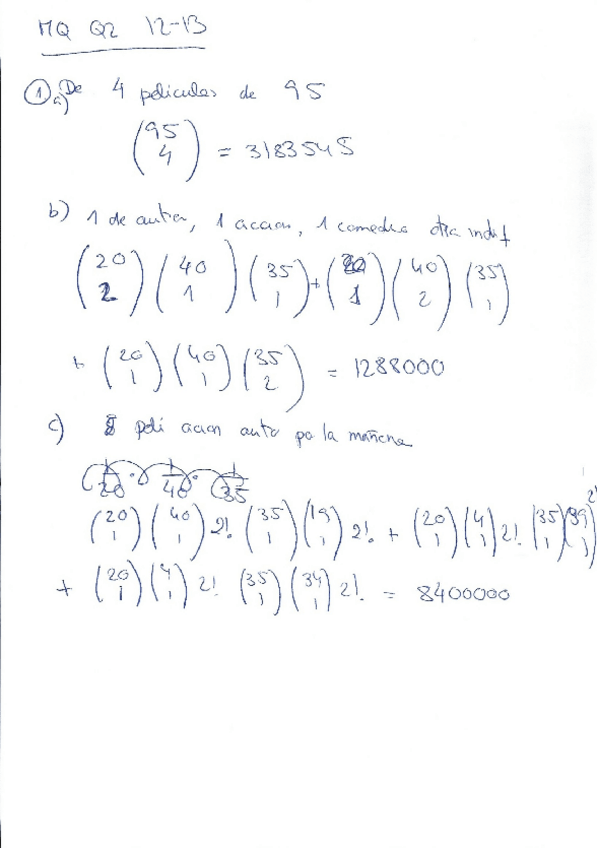 MQ Q2 12-13
1 a) De 4 peliculas de 95
(95 4) = 3183545
b) 1 de autor, 1 accion, 1 comedia otra indif
(20 2) (40 1) (35 1) + (20 1) (40 2) (35 1)
+ (20 1) (40 1) (35 2) = 1288000
c) peli accion autor por la mañana
1/20 · 1/40 · 1/35
(20 1) (40 1) 2! (35 1) (19 1) 2! + (20 1) (4 1) 2! (35 1) (39 1) 2!
+ (20 1) (4 1) 2! (35 1) (34 1) 2! = 8400000